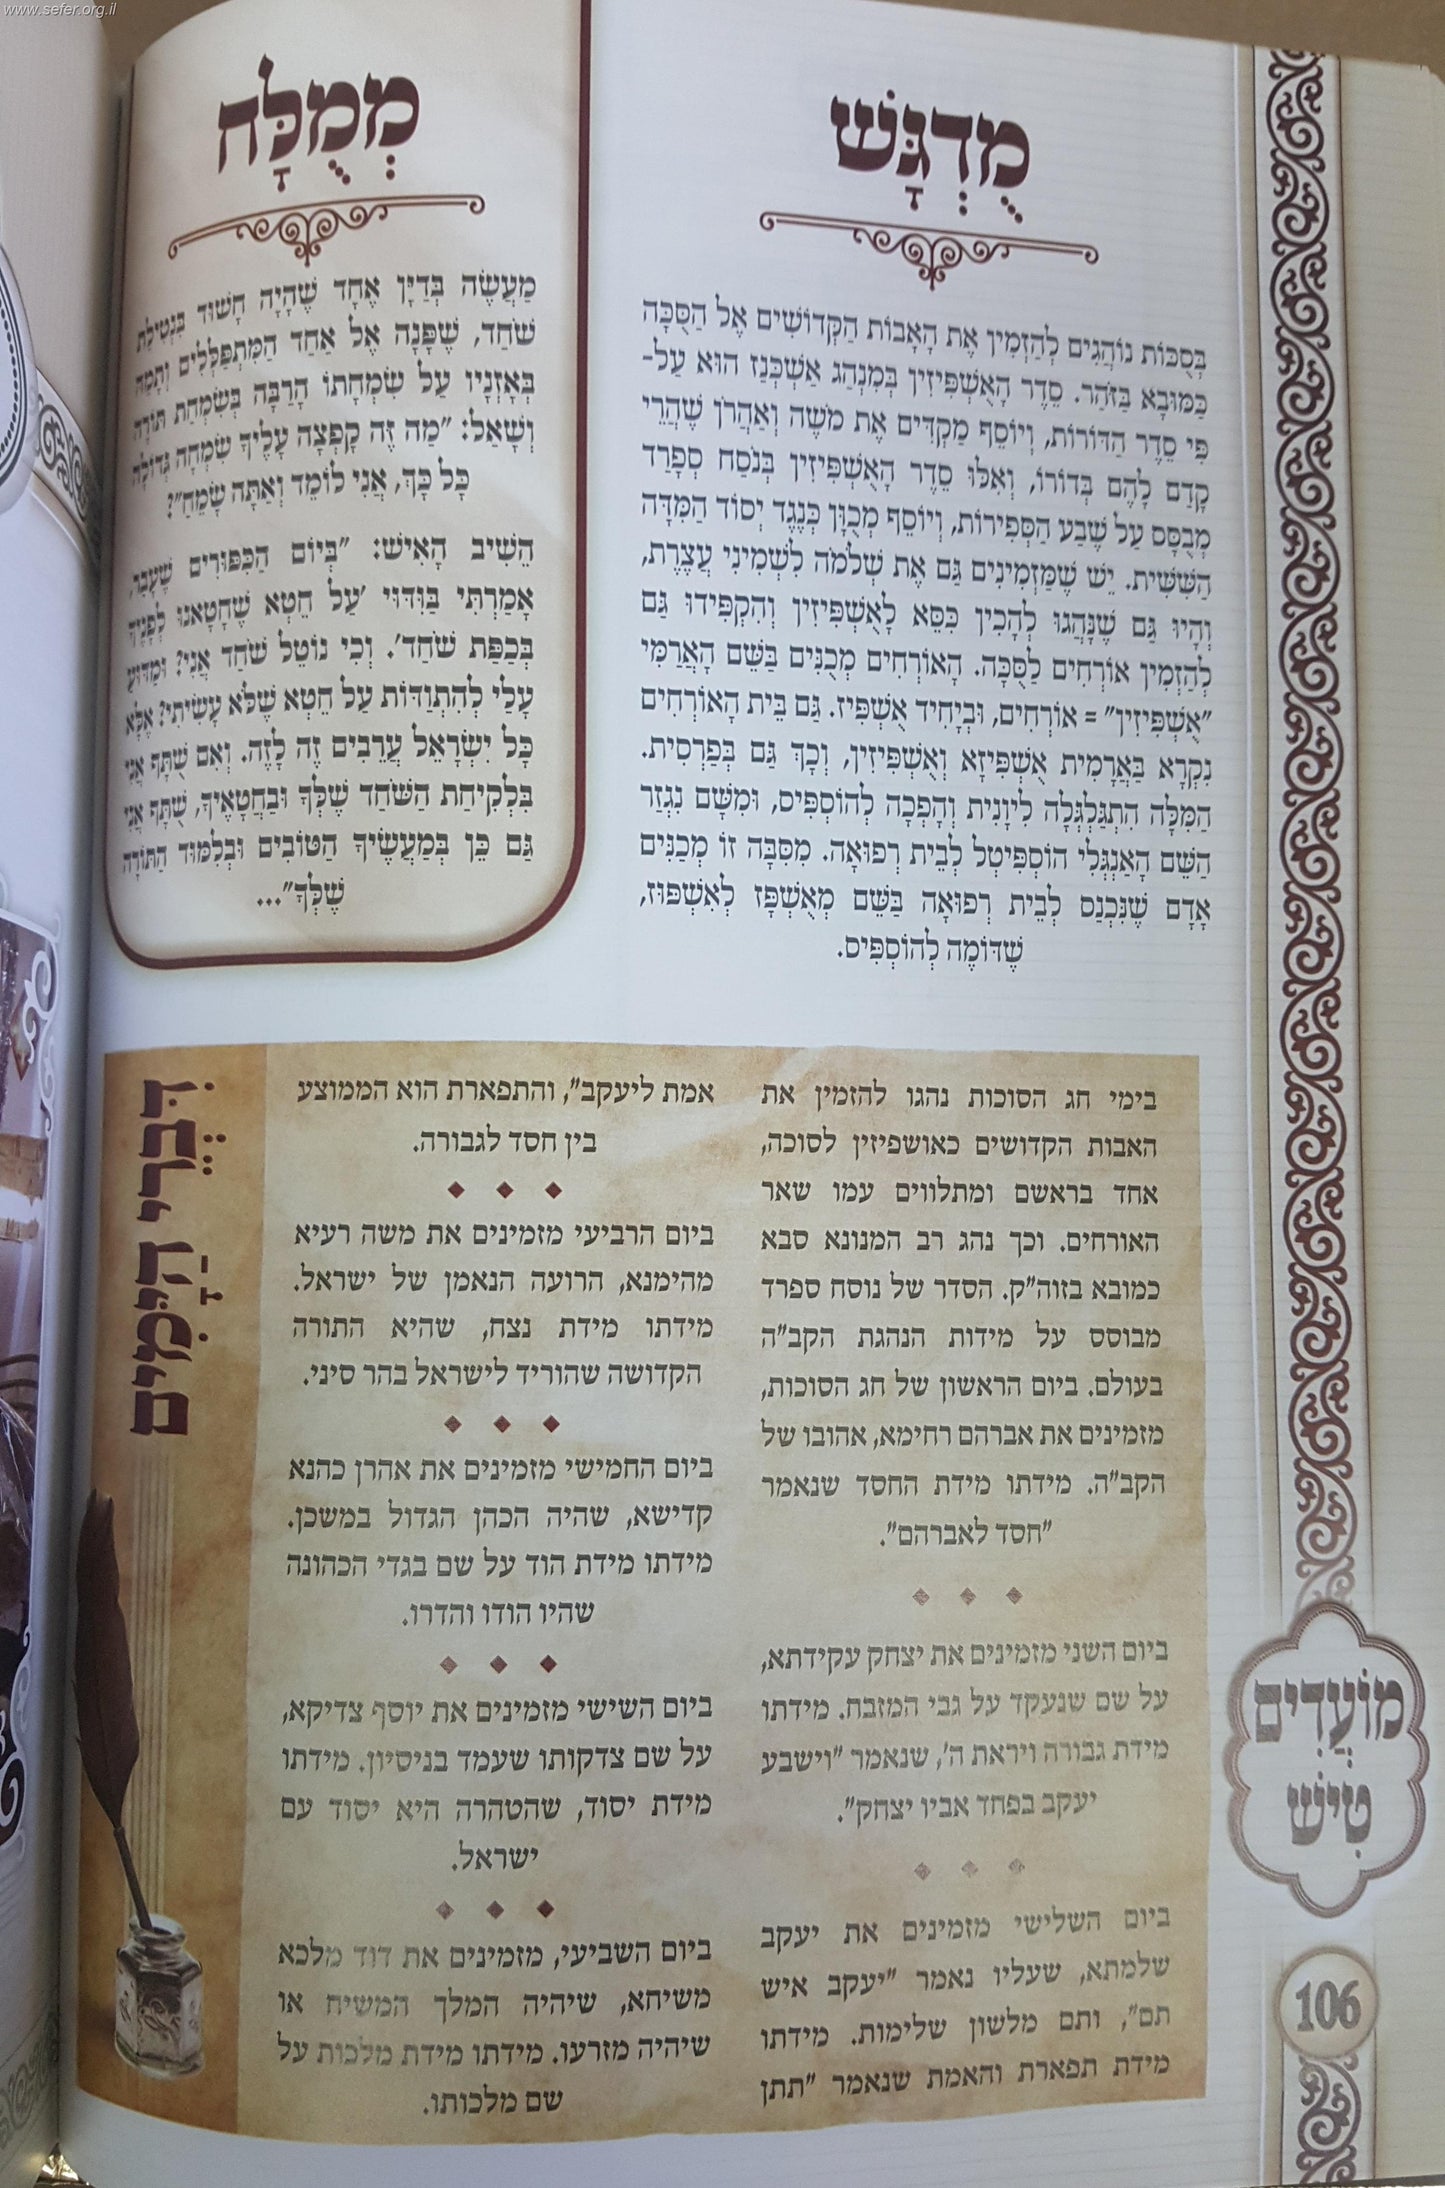 www.sefer.org.il
מֻדְגָּשׁ
בְּסֻכּוֹת נוֹהֲגִים לְהַזְמִין אֶת הָאָבוֹת הַקְּדוֹשִׁים אֶל הַסֻּכָּה
כַּמּוּבָא בַּזֹּהַר. סֵדֶר הָאֻשְׁפִּיזִין בְּמִנְהַג אַשְׁכְּנַז הוּא עַל-
פִּי סֵדֶר הַדּוֹרוֹת, וְיוֹסֵף מַקְדִּים אֶת מֹשֶׁה וְאַהֲרֹן שֶׁהֲרֵי
קָדַם לָהֶם בְּדוֹרוֹ, וְאִלּוּ סֵדֶר הָאֻשְׁפִּיזִין בְּנֹסַח סְפָרַד
מְבֻסָּס עַל שֶׁבַע הַסְּפִירוֹת, וְיוֹסֵף מְכֻוָּן כְּנֶגֶד יְסוֹד הַמִּדָּה
הַשִּׁשִּׁית. יֵשׁ שֶׁמַּזְמִינִים גַּם אֶת שְׁלֹמֹה לִשְׁמִינִי עֲצֶרֶת,
וְהָיוּ גַּם שֶׁנָּהֲגוּ לְהָכִין כִּסֵּא לָאֻשְׁפִּיזִין וְהִקְפִּידוּ גַּם
לְהַזְמִין אוֹרְחִים לַסֻּכָּה. הָאוֹרְחִים מְכֻנִּים בַּשֵּׁם הָאֲרַמִּי
"אֻשְׁפִּיזִין" = אוֹרְחִים, וּבְיָחִיד אֻשְׁפִּיז. גַּם בֵּית הָאוֹרְחִים
נִקְרָא בַּאֲרָמִית אֻשְׁפִּיזָא וְאֻשְׁפִּיזִין, וְכָךְ גַּם בְּפַרְסִית.
הַמִּלָּה הִתְגַּלְגְּלָה לִיוָנִית וְהָפְכָה לְהוֹסְפִּיס, וּמִשָּׁם נִגְזַר
הַשֵּׁם הָאַנְגְּלִי הוֹסְפִּיטָל לְבֵית רְפוּאָה. מִסִּבָּה זוֹ מְכַנִּים
אָדָם שֶׁנִּכְנַס לְבֵית רְפוּאָה בַּשֵּׁם מְאֻשְׁפָּז לְאִשְׁפּוּז,
שֶׁדּוֹמֶה לְהוֹסְפִּיס.
מְמֻלָּח
מַעֲשֶׂה בְּדַיָּן אֶחָד שֶׁהָיָה חָשׁוּד בִּנְטִילַת
שֹׁחַד, שֶׁפָּנָה אֶל אַחַד הַמִּתְפַּלְּלִים וְתָמַהּ
בְּאָזְנָיו עַל שִׂמְחָתוֹ הָרַבָּה בְּשִׂמְחַת תּוֹרָה
וְשָׁאַל: "מַה זֶּה קָפְצָה עָלֶיךָ שִׂמְחָה גְּדוֹלָה
כָּל כָּךְ, אֲנִי לוֹמֵד וְאַתָּה שָׂמֵחַ"?
הֵשִׁיב הָאִישׁ: "בְּיוֹם הַכִּפּוּרִים שֶׁעָבַר,
אָמַרְתִּי בַּוִּדּוּי 'עַל חֵטְא שֶׁחָטָאנוּ לְפָנֶיךָ
בְּכַפַּת שֹׁחַד'. וְכִי נוֹטֵל שֹׁחַד אֲנִי? וּמַדּוּעַ
עָלַי לְהִתְוַדּוֹת עַל חֵטְא שֶׁלֹּא עָשִׂיתִי? אֶלָּא
כָּל יִשְׂרָאֵל עֲרֵבִים זֶה לָזֶה. וְאִם שֻׁתָּף אֲנִי
בִּלְקִיחַת הַשֹּׁחַד שֶׁלְּךָ וּבַחֲטָאֶיךָ, שֻׁתָּף אֲנִי
גַּם כֵּן בְּמַעֲשֶׂיךָ הַטּוֹבִים וּבְלִמּוּד הַתּוֹרָה
שֶׁלְּךָ"...
דִּבְרֵי הַיָּמִים
בימי חג הסוכות נהגו להזמין את
האבות הקדושים כאושפיזין לסוכה,
אחד בראשם ומתלווים עמו שאר
האורחים. וכך נהג רב המנונא סבא
כמובא בזוה"ק. הסדר של נוסח ספרד
מבוסס על מידות הנהגת הקב"ה
בעולם. ביום הראשון של חג הסוכות,
מזמינים את אברהם רחימא, אהובו של
הקב"ה. מידתו מידת החסד שנאמר
"חסד לאברהם".
ביום השני מזמינים את יצחק עקידתא,
על שם שנעקד על גבי המזבח. מידתו
מידת גבורה ויראת ה', שנאמר "וישבע
יעקב בפחד אביו יצחק".
ביום השלישי מזמינים את יעקב
שלמתא, שעליו נאמר "יעקב איש
תם", ותם מלשון שלימות. מידתו
מידת תפארת והאמת שנאמר "תתן
אמת ליעקב", והתפארת הוא הממוצע
בין חסד לגבורה.
ביום הרביעי מזמינים את משה רעיא
מהימנא, הרועה הנאמן של ישראל.
מידתו מידת נצח, שהיא התורה
הקדושה שהוריד לישראל בהר סיני.
ביום החמישי מזמינים את אהרן כהנא
קדישא, שהיה הכהן הגדול במשכן.
מידתו מידת הוד על שם בגדי הכהונה
שהיו הודו והדרו.
ביום השישי מזמינים את יוסף צדיקא,
על שם צדקותו שעמד בניסיון. מידתו
מידת יסוד, שהטהרה היא יסוד עם
ישראל.
ביום השביעי, מזמינים את דוד מלכא
משיחא, שיהיה המלך המשיח או
שיהיה מזרעו. מידתו מידת מלכות על
שם מלכותו.
מוֹעֲדִים
טִישׁ
106